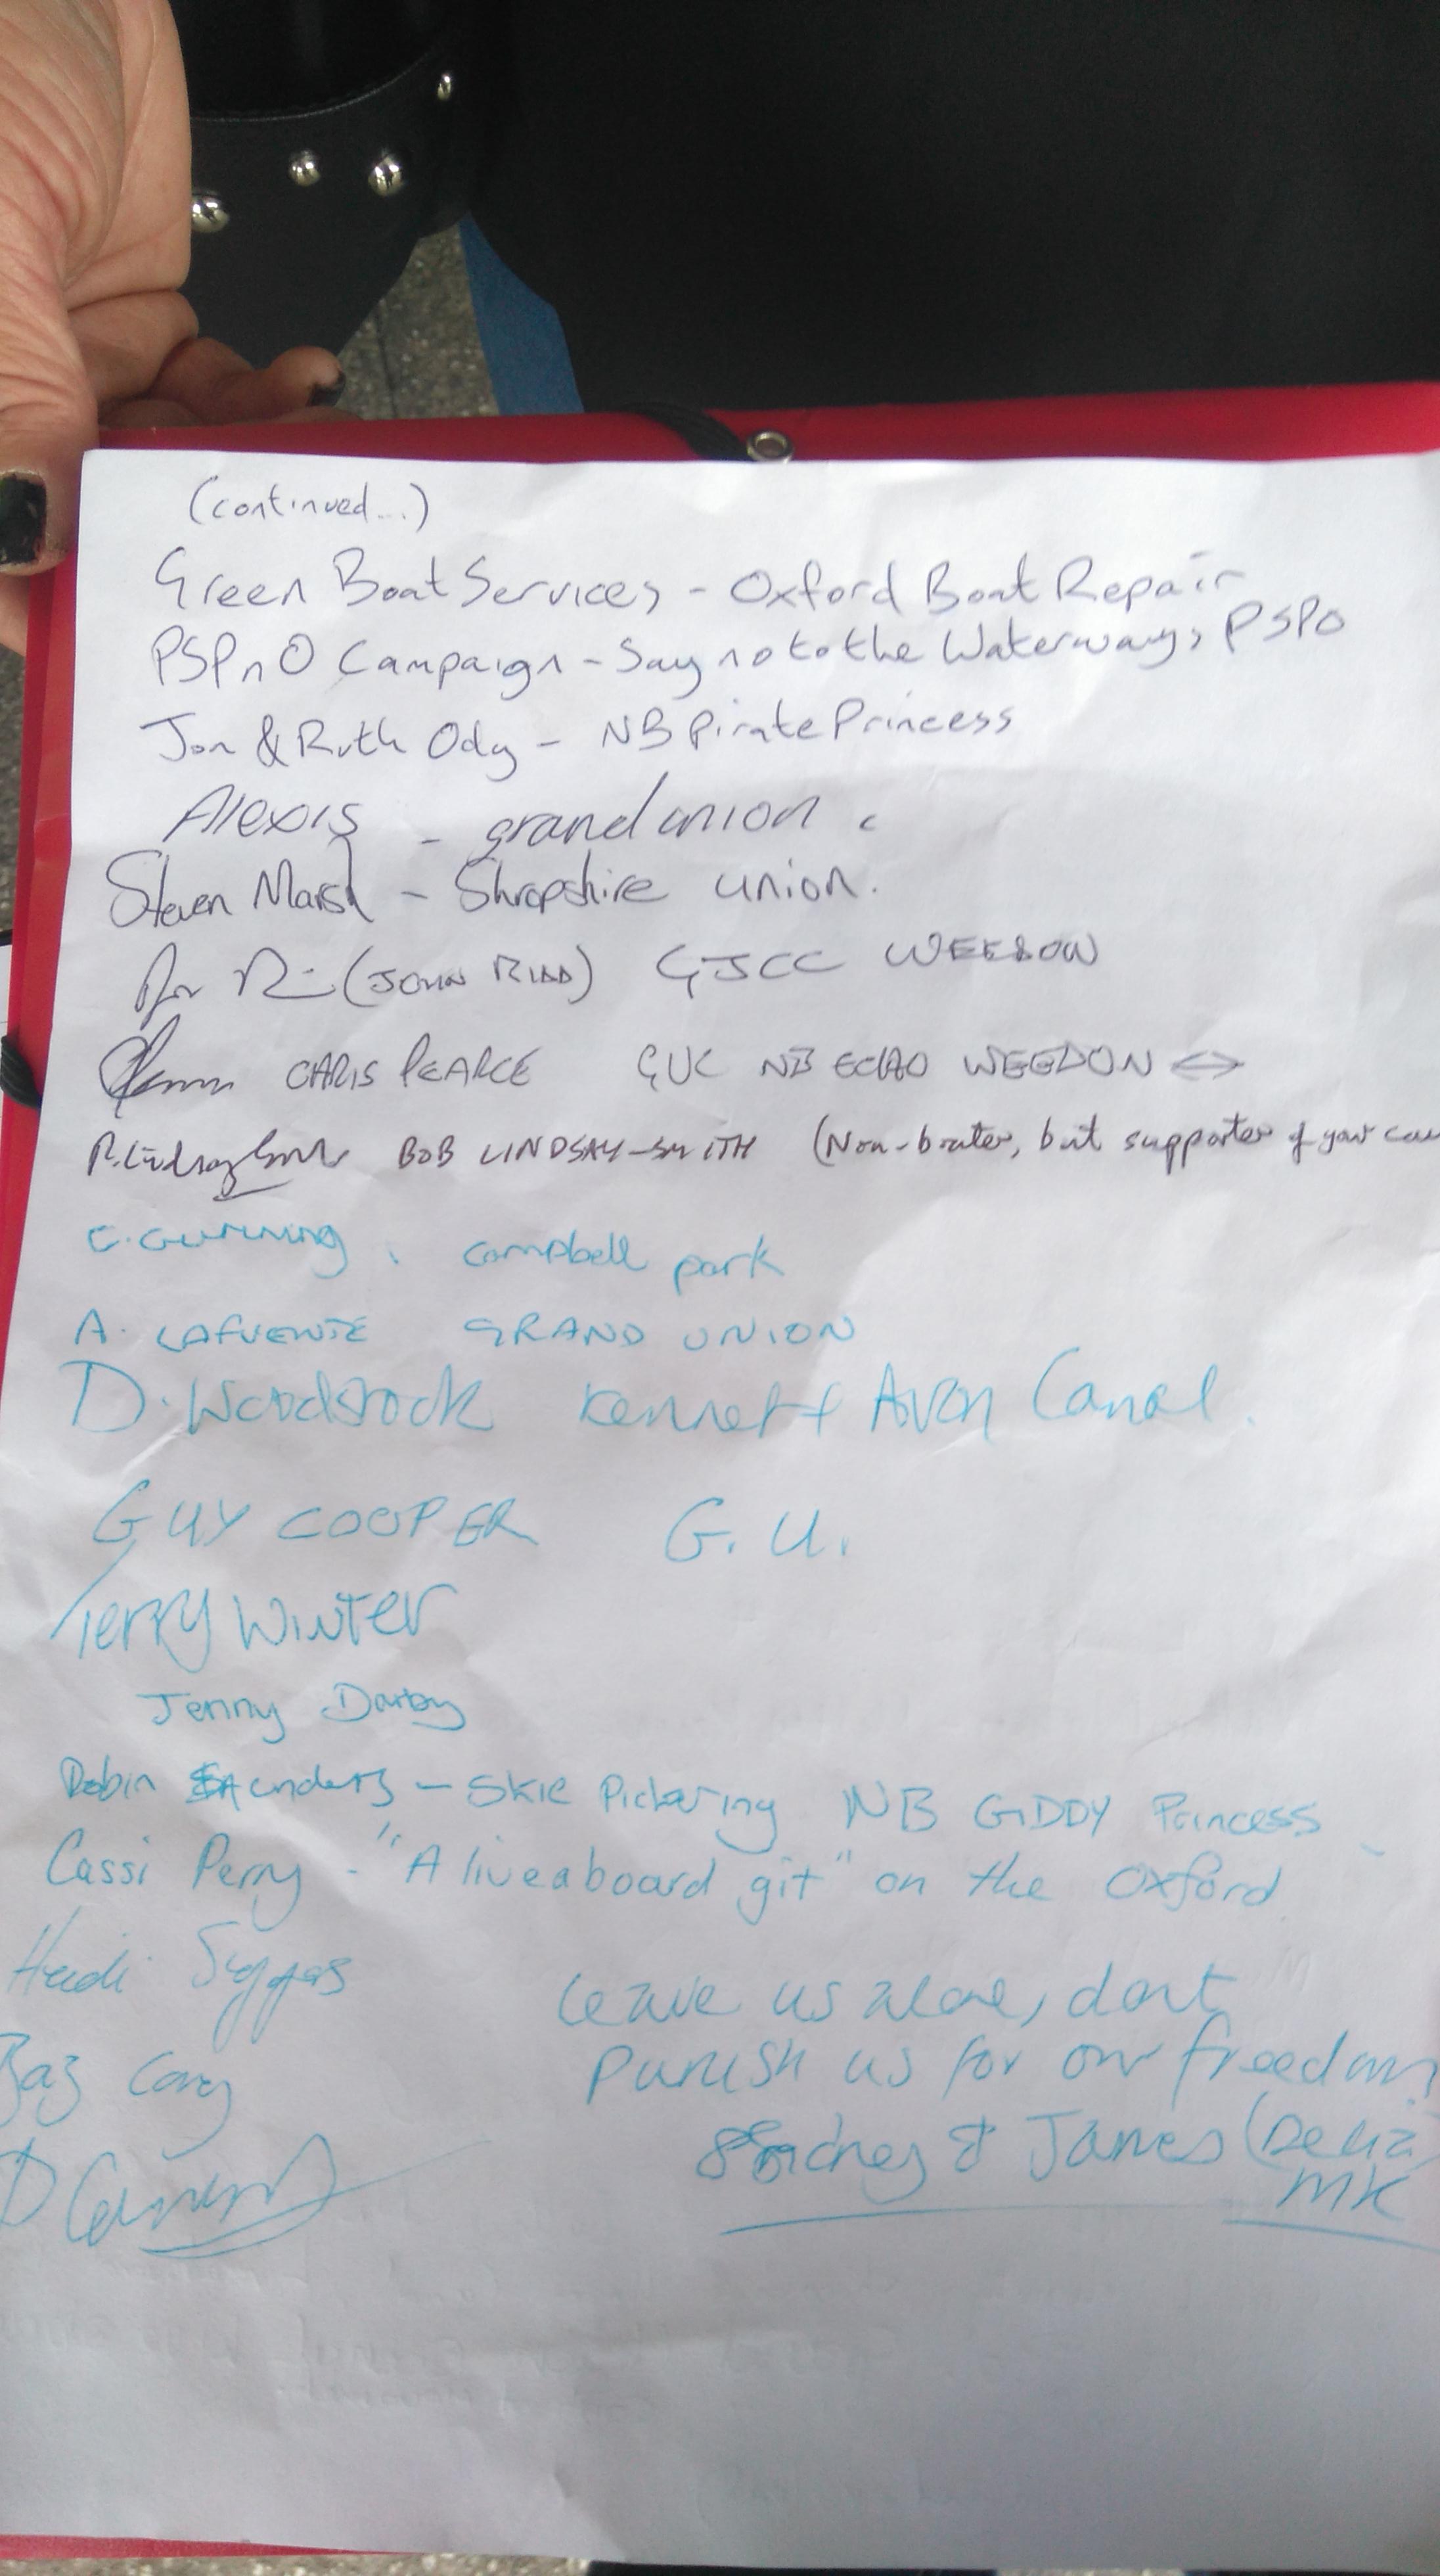 (continued...)
Green Boat Services - Oxford Boat Repair
PSPnO Campaign - Say no to the Waterways PSPO
Jon & Ruth Ody - NB Pirate Princess
Alexis - grand union
Steven Marsh - Shropshire union.
(JOHN RIDD) GJCC WEEDON
CHRIS PEARCE GUC NB ECHO WEEDON <->
BOB LINDSAY-SMITH (Non-boater, but supporter of your
C. Gunning, Campbell park
A. LAFUENTE GRAND UNION
D. Woodstock Kennet + Avon Canal.
GUY COOPER G.U.
Terry Winter
Jenny Darby
Robin Saunders - Skie Pickering NB GIDDY Princess
Cassi Perry - "A liveaboard git" on the Oxford
Heidi
Baz
D
leave us alone, dont
punish us for our freedom
& James (Delia)
MK